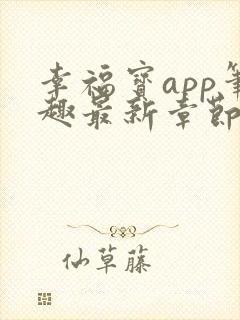 幸福宝app笔
趣最新章节
仙草藤